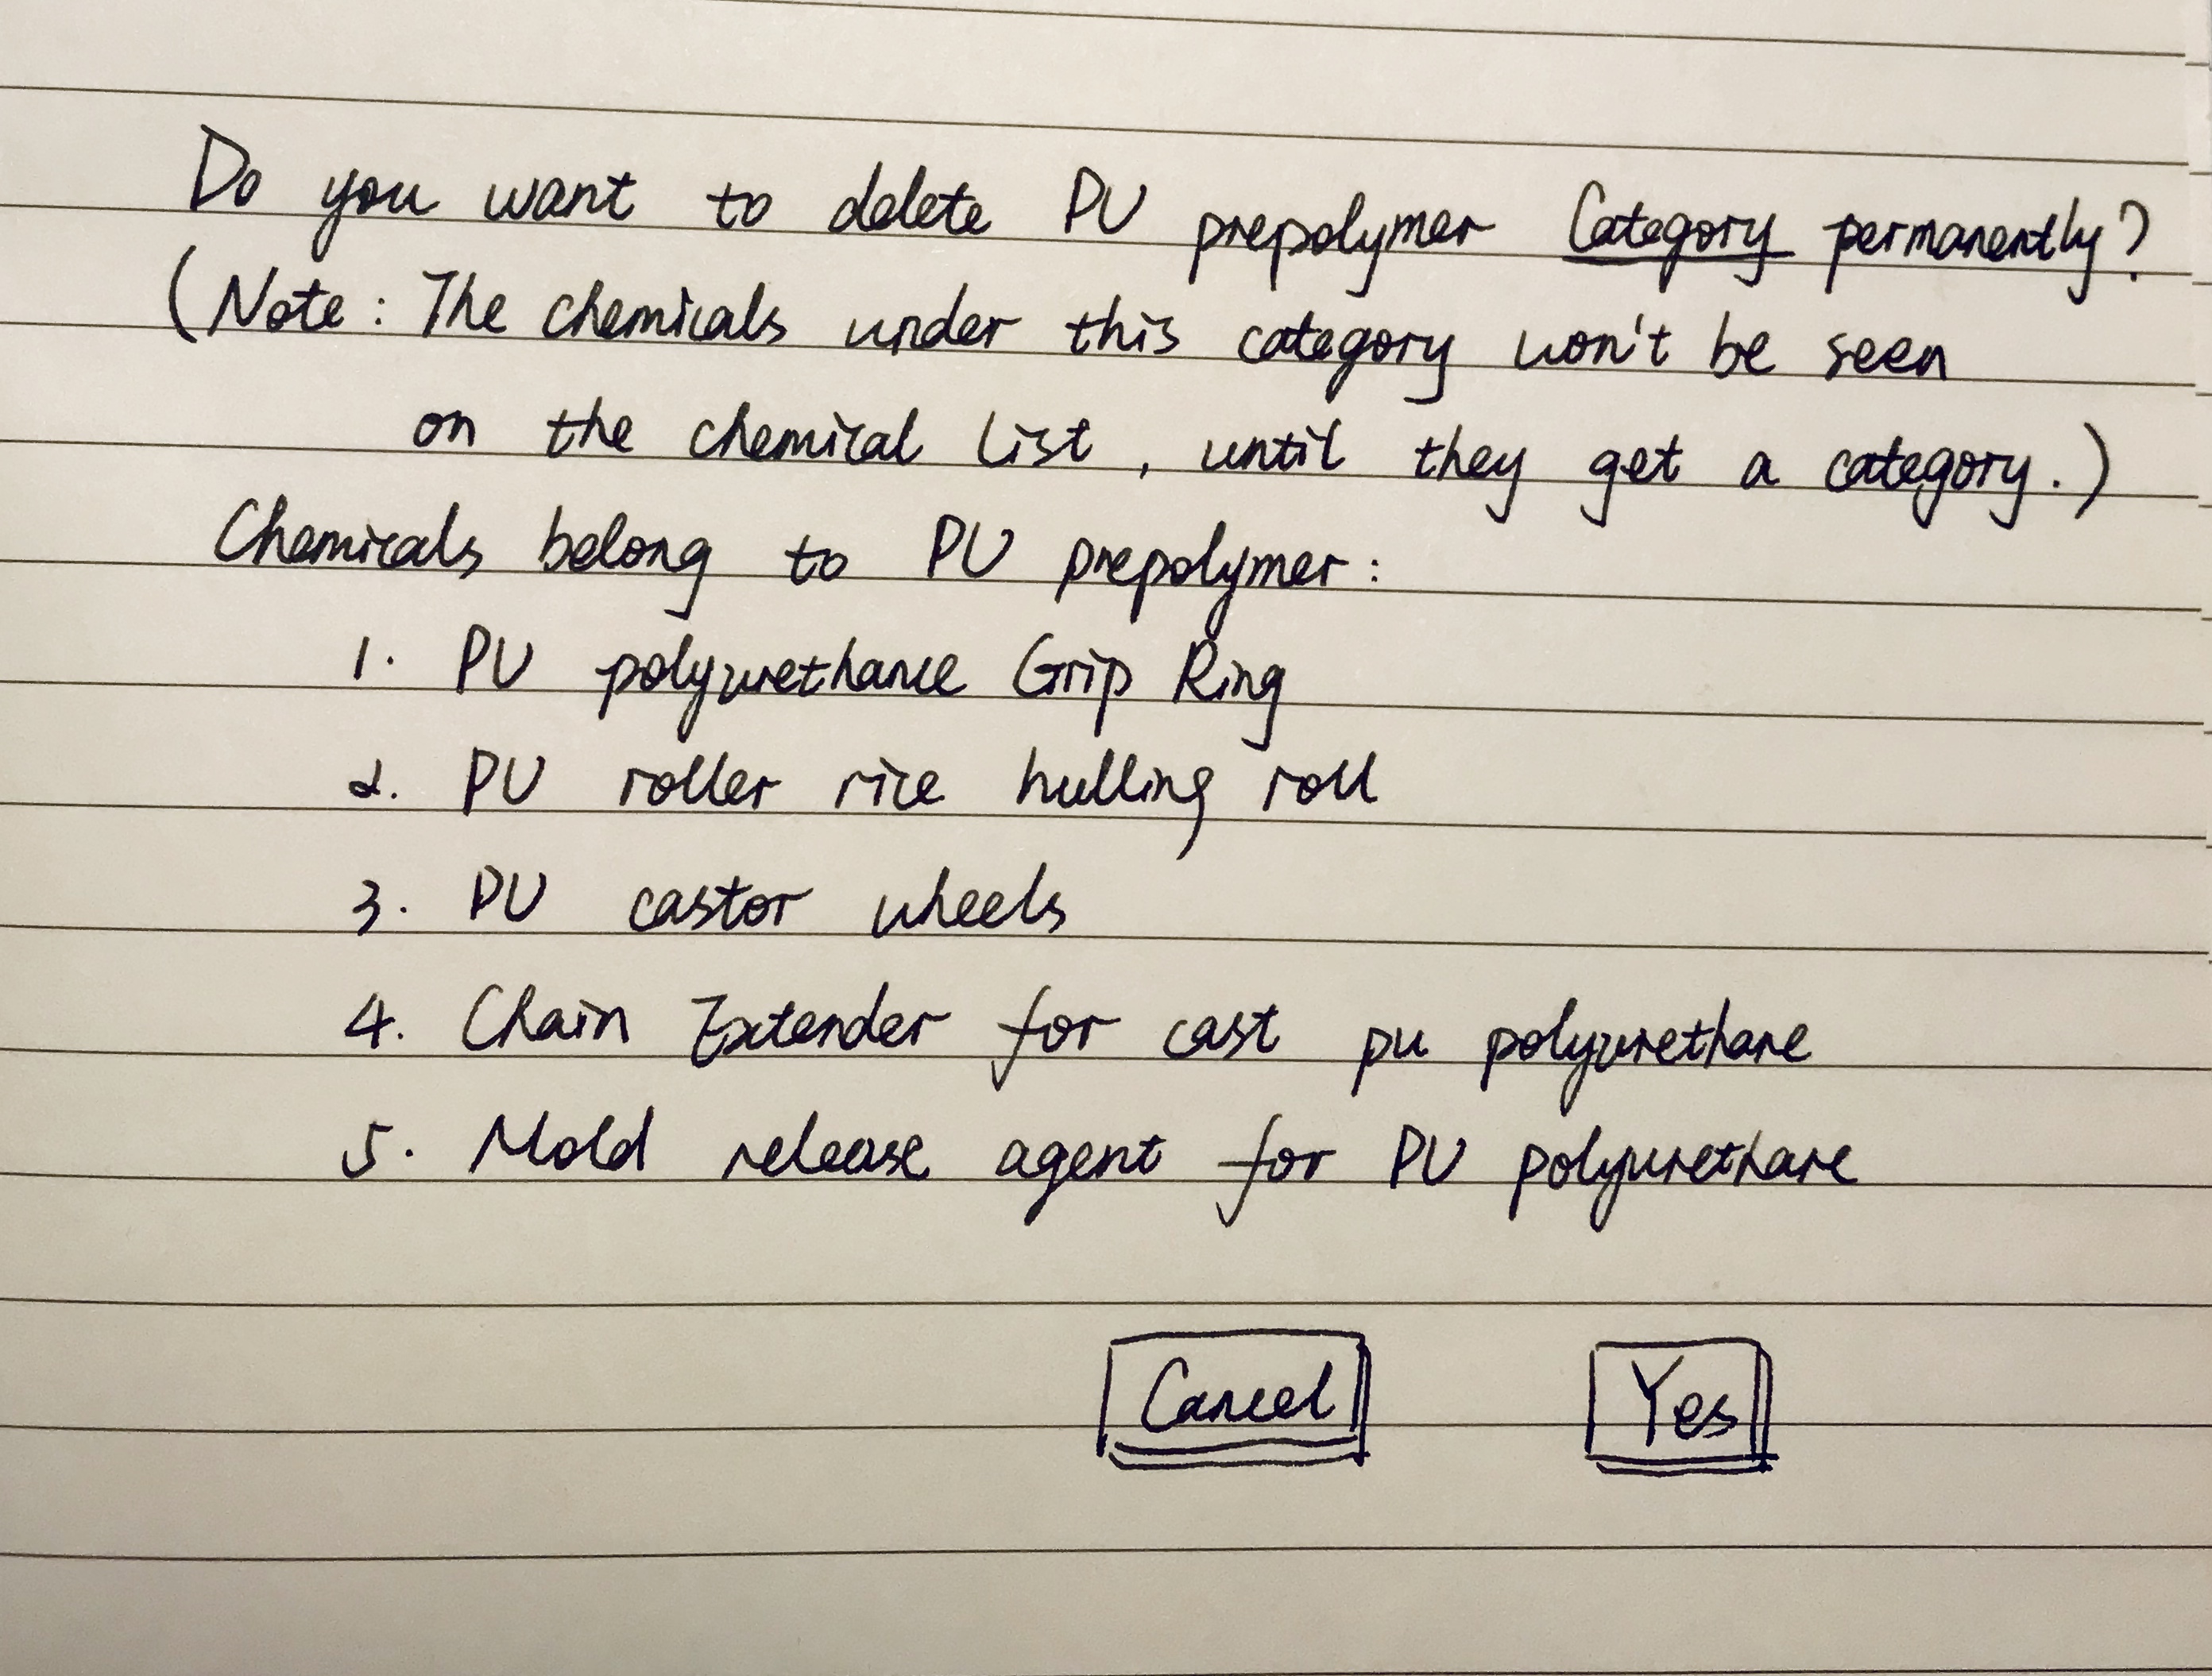 Do you want to delete PU prepolymer Category permanently?
(Note: The chemicals under this category won't be seen
on the chemical list, until they get a category.)
Chemicals belong to PU prepolymer:
1. PU polyurethance Grip Ring
2. PU roller rice hulling roll
3. PU castor wheels
4. Chain Extender for cast pu polyurethane
5. Mold release agent for PU polyurethane
Cancel Yes